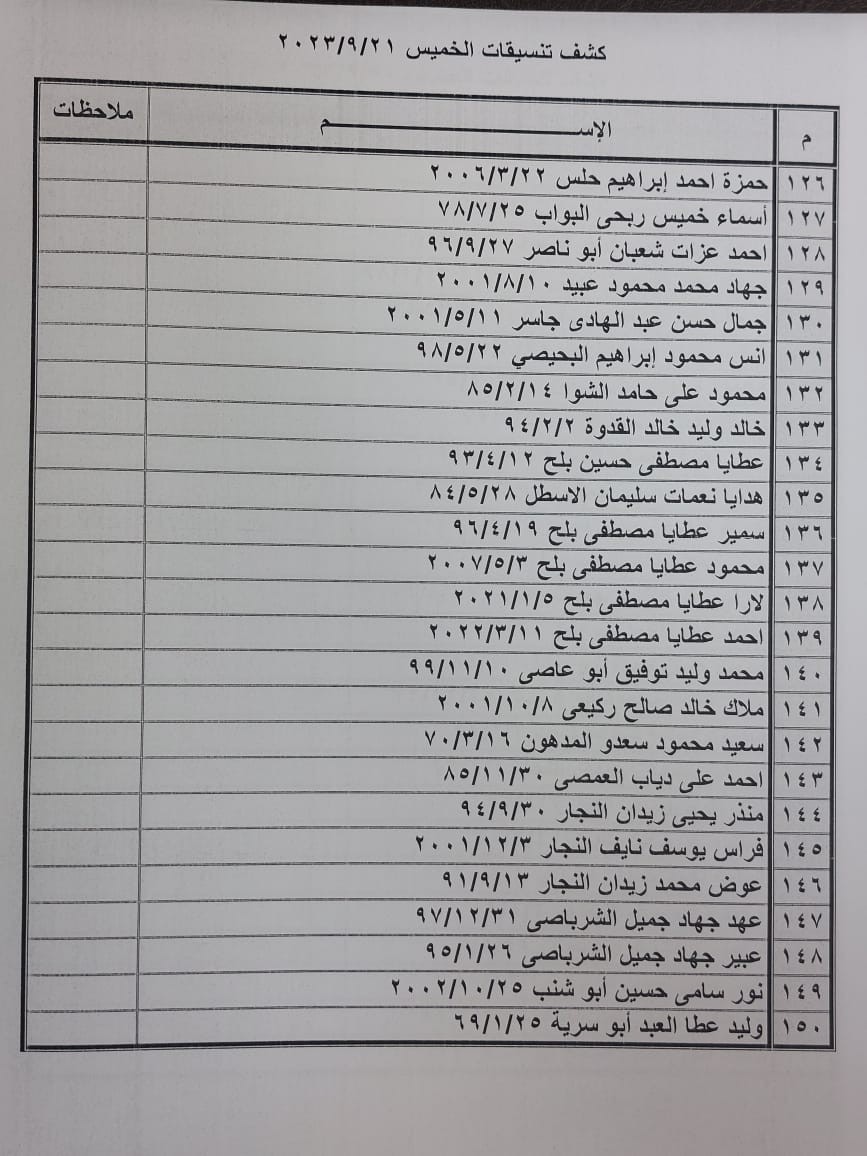 كشف تنسيقات الخميس ٢٠٢٣/٩/٢١
م الإســـــم ملاحظات
١٢٦ حمزة احمد إبراهيم حلس ٢٠٠٦/٣/٢٢
١٢٧ أسماء خميس ربحى البواب ٧٨/٧/٢٥
١٢٨ احمد عزات شعبان أبو ناصر ٩٦/٩/٢٧
١٢٩ جهاد محمد محمود عبيد ٢٠٠١/٨/١٠
١٣٠ جمال حسن عبد الهادى جاسر ٢٠٠١/٥/١١
١٣١ انس محمود إبراهيم البحيصي ٩٨/٥/٢٢
١٣٢ محمود على حامد الشوا ٨٥/٢/١٤
١٣٣ خالد وليد خالد القدوة ٩٤/٢/٢
١٣٤ عطايا مصطفى حسين بلح ٩٣/٤/١٢
١٣٥ هدايا نعمات سليمان الاسطل ٨٤/٥/٢٨
١٣٦ سمير عطايا مصطفى بلح ٩٦/٤/١٩
١٣٧ محمود عطايا مصطفى بلح ٢٠٠٧/٥/٣
١٣٨ لارا عطايا مصطفى بلح ٢٠٢١/١/٥
١٣٩ احمد عطايا مصطفى بلح ٢٠٢٢/٣/١١
١٤٠ محمد وليد توفيق أبو عاصى ٩٩/١١/١٠
١٤١ ملاك خالد صالح ركيعى ٢٠٠١/١٠/٨
١٤٢ سعيد محمود سعدو المدهون ٧٠/٣/١٦
١٤٣ احمد على دياب العمصى ٨٥/١١/٣٠
١٤٤ منذر يحيى زيدان النجار ٩٤/٩/٣٠
١٤٥ فراس يوسف نايف النجار ٢٠٠١/١٢/٣
١٤٦ عوض محمد زيدان النجار ٩١/٩/١٣
١٤٧ عهد جهاد جميل الشرباصى ٩٧/١٢/٣١
١٤٨ عبير جهاد جميل الشرباصى ٩٥/١/٢٦
١٤٩ نور سامى حسين أبو شنب ٢٠٠٢/١٠/٢٥
١٥٠ وليد عطا العبد أبو سرية ٦٩/١/٢٥